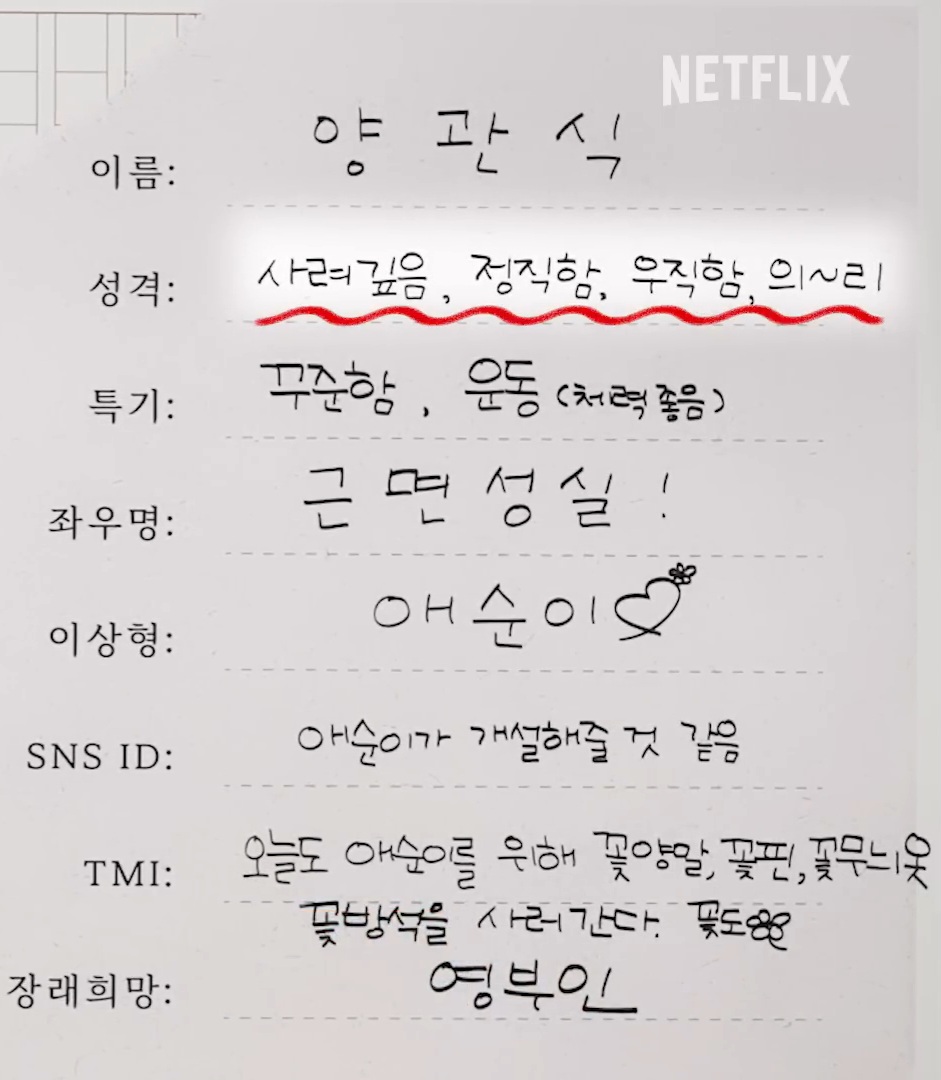 NETFLIX
이름: 양관식
성격: 사려깊음, 정직함, 우직함, 의~리
특기: 꾸준함, 운동 (체력 좋음)
좌우명: 근면성실!
이상형: 애순이♡
SNS ID: 애순이가 개설해줄 것 같음
TMI: 오늘도 애순이를 위해 꽃양말, 꽃핀, 꽃무늬옷
꽃방석을 사러간다. 꽃도
장래희망: 영부인